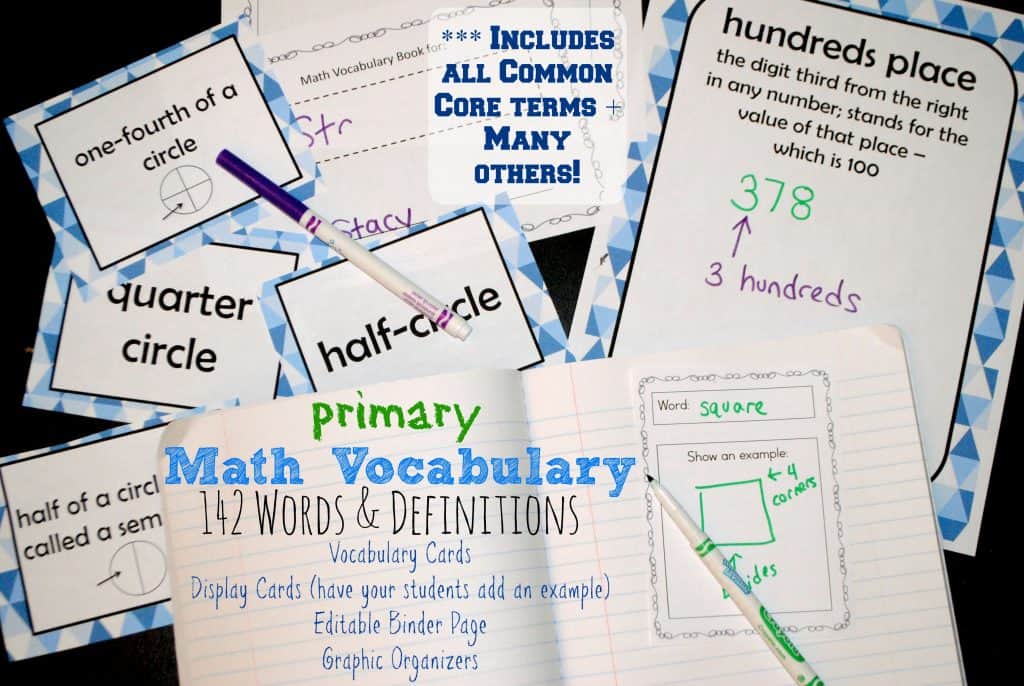 one-fourth of a
circle
Math Vocabulary Book for:
Str
Stacy
*** Includes
all Common
Core terms +
Many
others!
hundreds place
the digit third from the right
in any number; stands for the
value of that place –
which is 100
378
3 hundreds
quarter
circle
half-circle
half of a circl
called a sem
primary
Math Vocabulary
142 Words & Definitions
Vocabulary Cards
Display Cards (have your students add an example)
Editable Binder Page
Graphic Organizers
Word: square
Show an example:
← 4
corners
ides